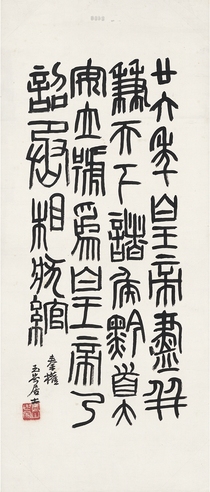 廿六年皇帝盡并
兼天下諸侯黔首大
安立號為皇帝乃
詔丞相狀綰
秦權
居士